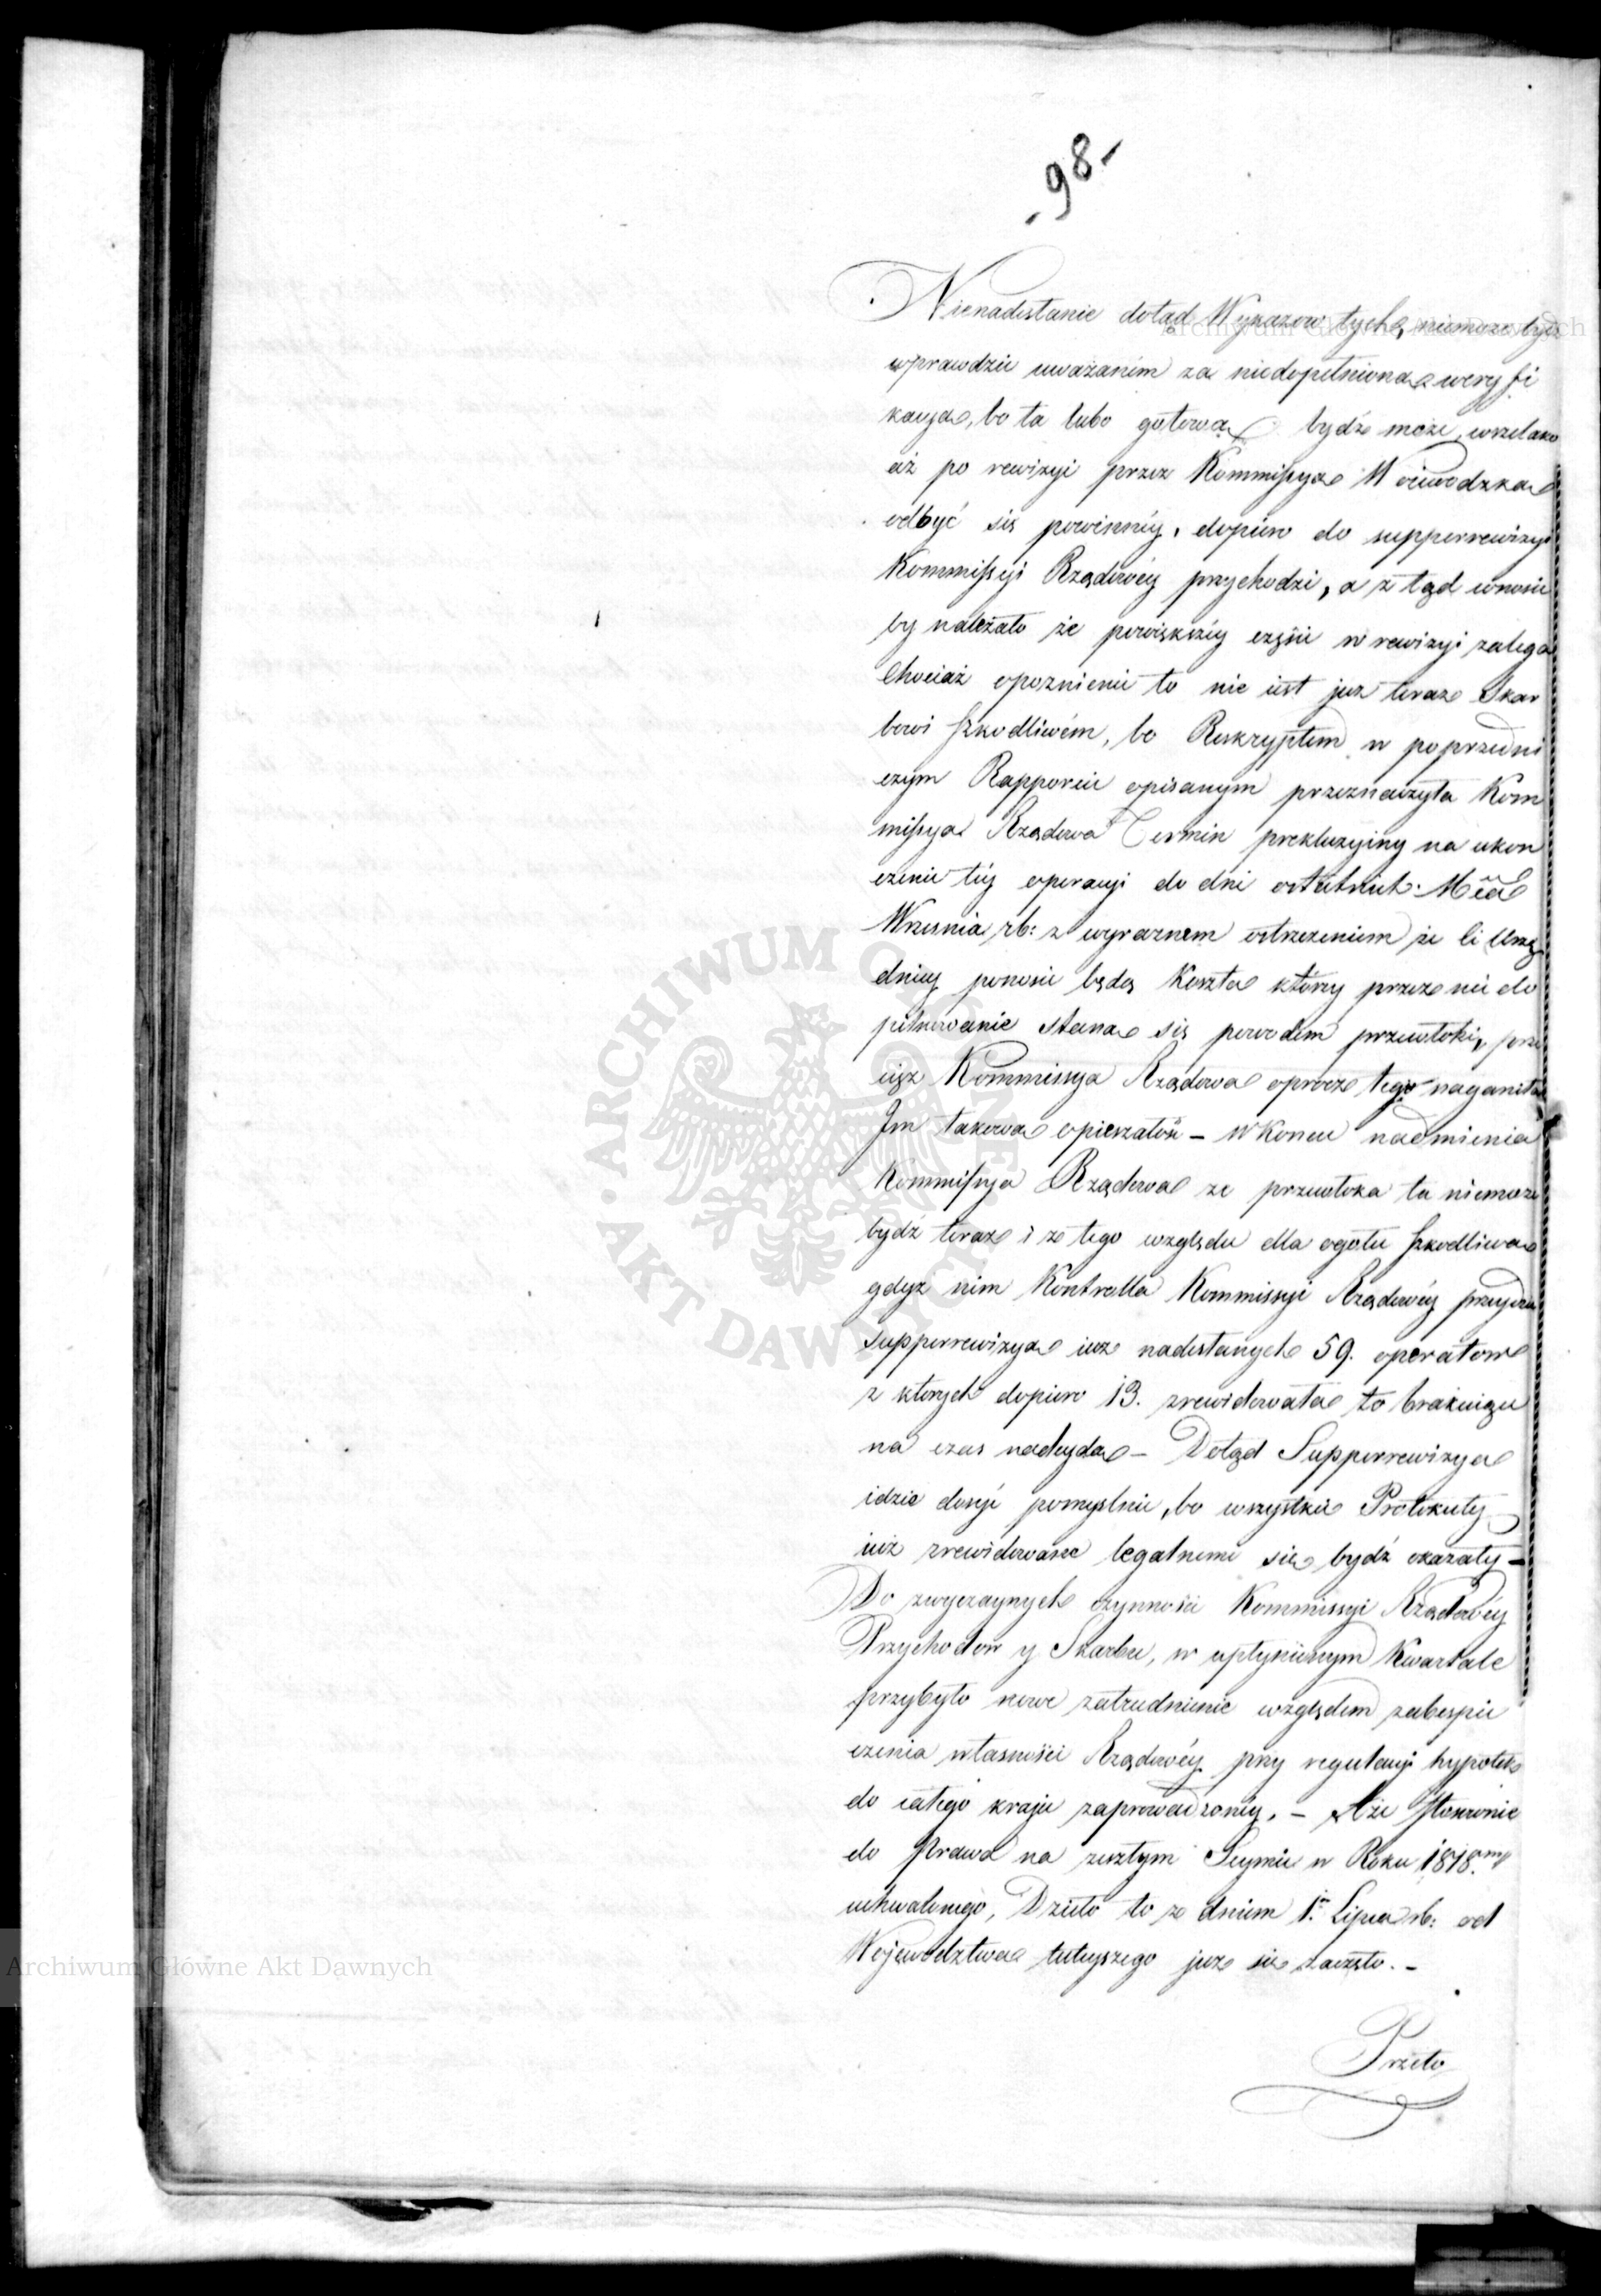 98.
Nienadesłanie dotąd Wykazow tych, niemoże bydź
wprawdzie uważaném za niedopełnioną weryfi
kacyą, bo ta lubo gotową bydź może, wszelako
aż po rewizyi przez Kommissyą Woiewodzką
odbyć się powinnéy, dopiero do supperrewizyi
Kommissyi Rządowéy przychodzi, a z tąd wnosić
by należało że powiększéy części w rewizyi zalega
Chociaż opoznienie to nie iest już teraz Skar
bowi szkodliwém, bo Reskryptem w poprzedni
czym Rapporcie opisanym przeznaczyła Kom
missya Rządowa Termin prekluzyiny na ukoń
czenie téy operacyi do dni ostatnich Mca
Wrzesnia rb: z wyraznem ostrzeżeniem że ci Urzę
dnicy ponosić będą Koszta którzy przez nie do
pilnowanie staną się powodem przewłoki, prze
cież Kommissya Rządowa oprócz tego naganiła
Im takową opieszałość – w Koncu nadmienia
Kommissya Rządowa że przewłoka ta niemoże
bydź teraz i z tego względu dla ogółu szkodliwą
gdyż nim Kontrolla Kommissyi Rządowéy przeydzie
supperrewizyą iuż nadesłanych 59. operatow
z ktorych dopiero 13. zrewidowała to brakuiące
na czas nadeydą – Dotąd Supperrewizya
idzie dosyć pomyslnie, bo wszystkie Protokuły
iuż zrewidowane legalnemi się bydź okazały –
Do zwyczaynych czynności Kommissyi Rządowéy
Przychodów y Skarbu, w upłynionym Kwartale
przybyło nowe zatrudnienie względem zabespie
czenia własności Rządowéy przy regulacyi hypotek
do całego kraju zaprowadzonéy. – Aże stosownie
do Prawa na zeszłym Seymie w Roku 1818.my
uchwalonego, Dzieło to z dniem 1. Lipca rb: od
Wojewodztwa tuteyszego już się zaczęło. –
Przeto
Archiwum Główne Akt Dawnych
Archiwum Główne Akt Dawnych
ARCHIWUM GŁÓWNE · AKT DAWNYCH